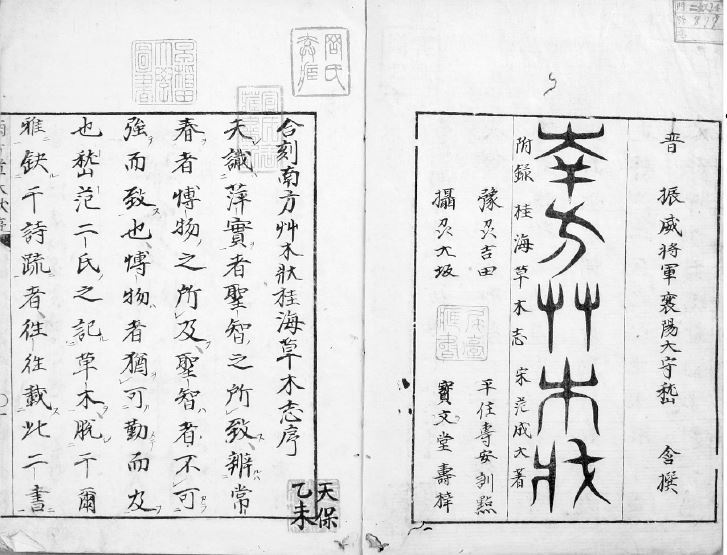 晉 振威將軍襄陽大守嵆 含撰
南方艸木狀
附錄 桂海草木志 宋范成大著
豫州吉田 平住壽安訓點
攝州大坂 寶文堂壽梓
合刻南方艸木狀桂海草木志序
夫識萍實者聖智之所致辨常
春者博物之所及聖智者不可
強而致也博物者猶可勤而及
也嵆范二氏之記草木脫于爾
雅缺于詩疏者往往載此二書
天保
乙未